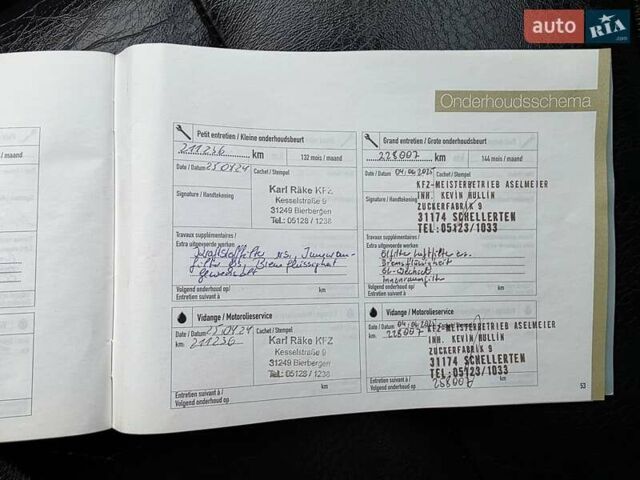 auto RIA.com
Onderhoudsschema
Petit entretien / Kleine onderhoudsbeurt
211236 km 132 mois / maand
Date / Datum 25.04.24 Cachet / Stempel
Signature / Handtekening
Karl Räke KFZ
Kesselstraße 9
31249 Bierbergen
Tel.: 05128 / 1238
Travaux supplémentaires /
Extra uitgevoerde werken
Kraftstofffilter
Bremsflüssigkeit
gewechselt
Volgend onderhoud op km
Entretien suivant à
Grand entretien / Grote onderhoudsbeurt
228007 km 144 mois / maand
Date / Datum 04.06.2025 Cachet / Stempel
Signature / Handtekening
KFZ-MEISTERBETRIEB ASELMEIER
INH. KEVIN MULLIN
ZUCKERFABRIK 9
31174 SCHELLERTEN
TEL: 05123/1033
Travaux supplémentaires /
Extra uitgevoerde werken
Ölfilter Luftfilter
Bremsflüssigkeit
Innenraumfilter
Volgend onderhoud op km
Entretien suivant à
Vidange / Motorolieservice
Date / Datum 25.04.24 Cachet / Stempel
km 211236
Karl Räke KFZ
Kesselstraße 9
31249 Bierbergen
Tel.: 05128 / 1238
Entretien suivant à /
Volgend onderhoud op km
Vidange / Motorolieservice
Date / Datum 04.06.2025 Cachet / Stempel
km 228007
KFZ-MEISTERBETRIEB ASELMEIER
INH. KEVIN MULLIN
ZUCKERFABRIK 9
31174 SCHELLERTEN
TEL: 05123/1033
Entretien suivant à /
Volgend onderhoud op km
53